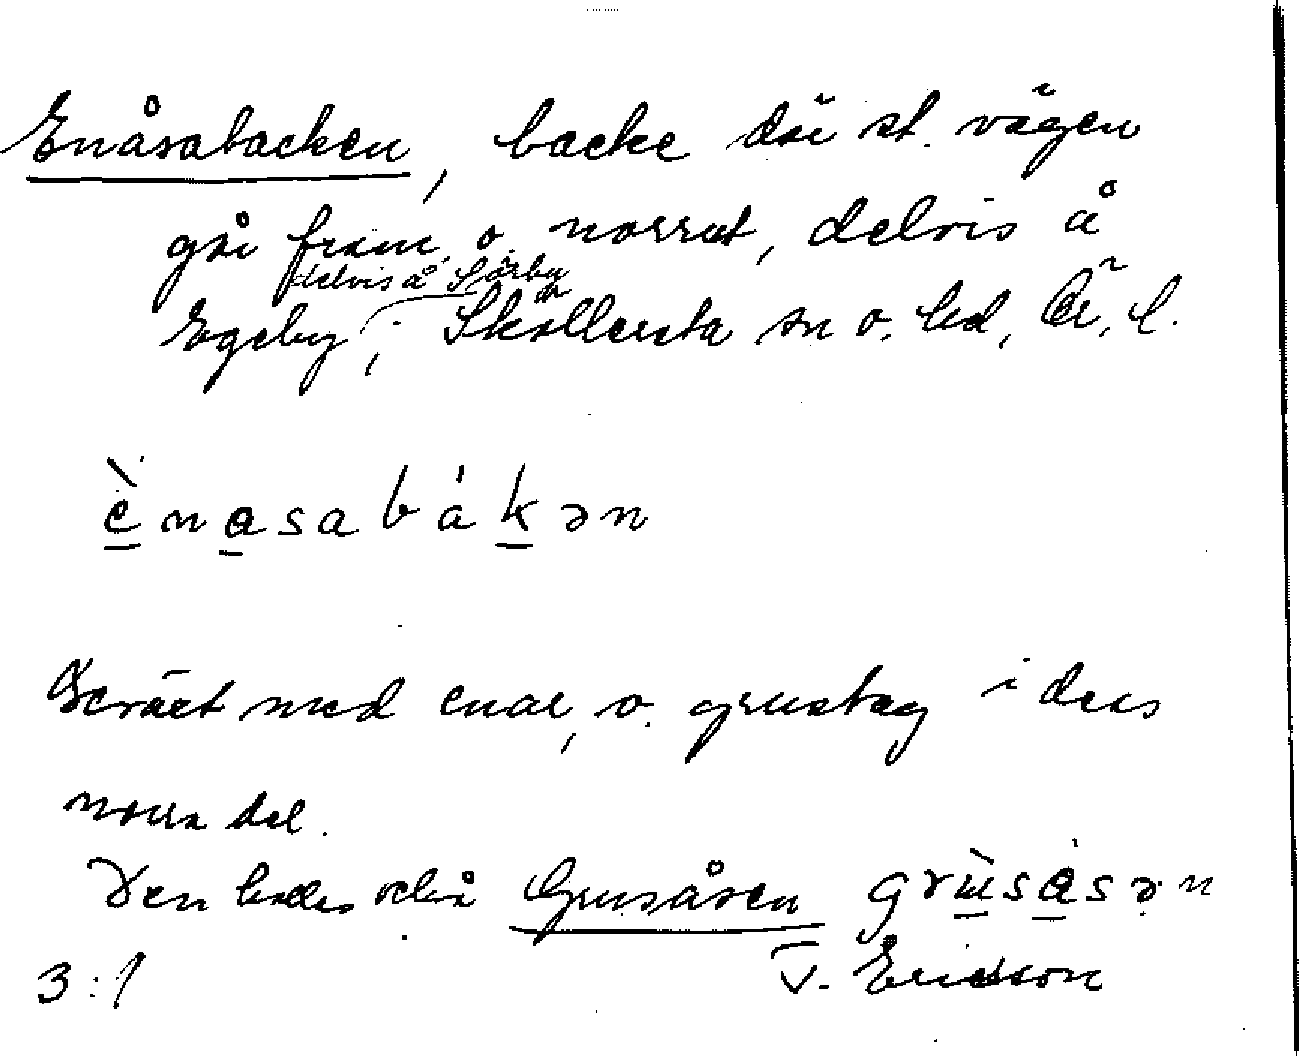 Enåsabacken, backe där st. vägen
går fram, o. norrut, delvis å
delvis å Sörby
Egeby, i Sköllersta sn o. hd, Ör. l.
ènasabákən
Beväxt med enar, o. grustag i dess
norra del.
Den kallas också Grusåsen grùsásən
3:1 T. Ericsson